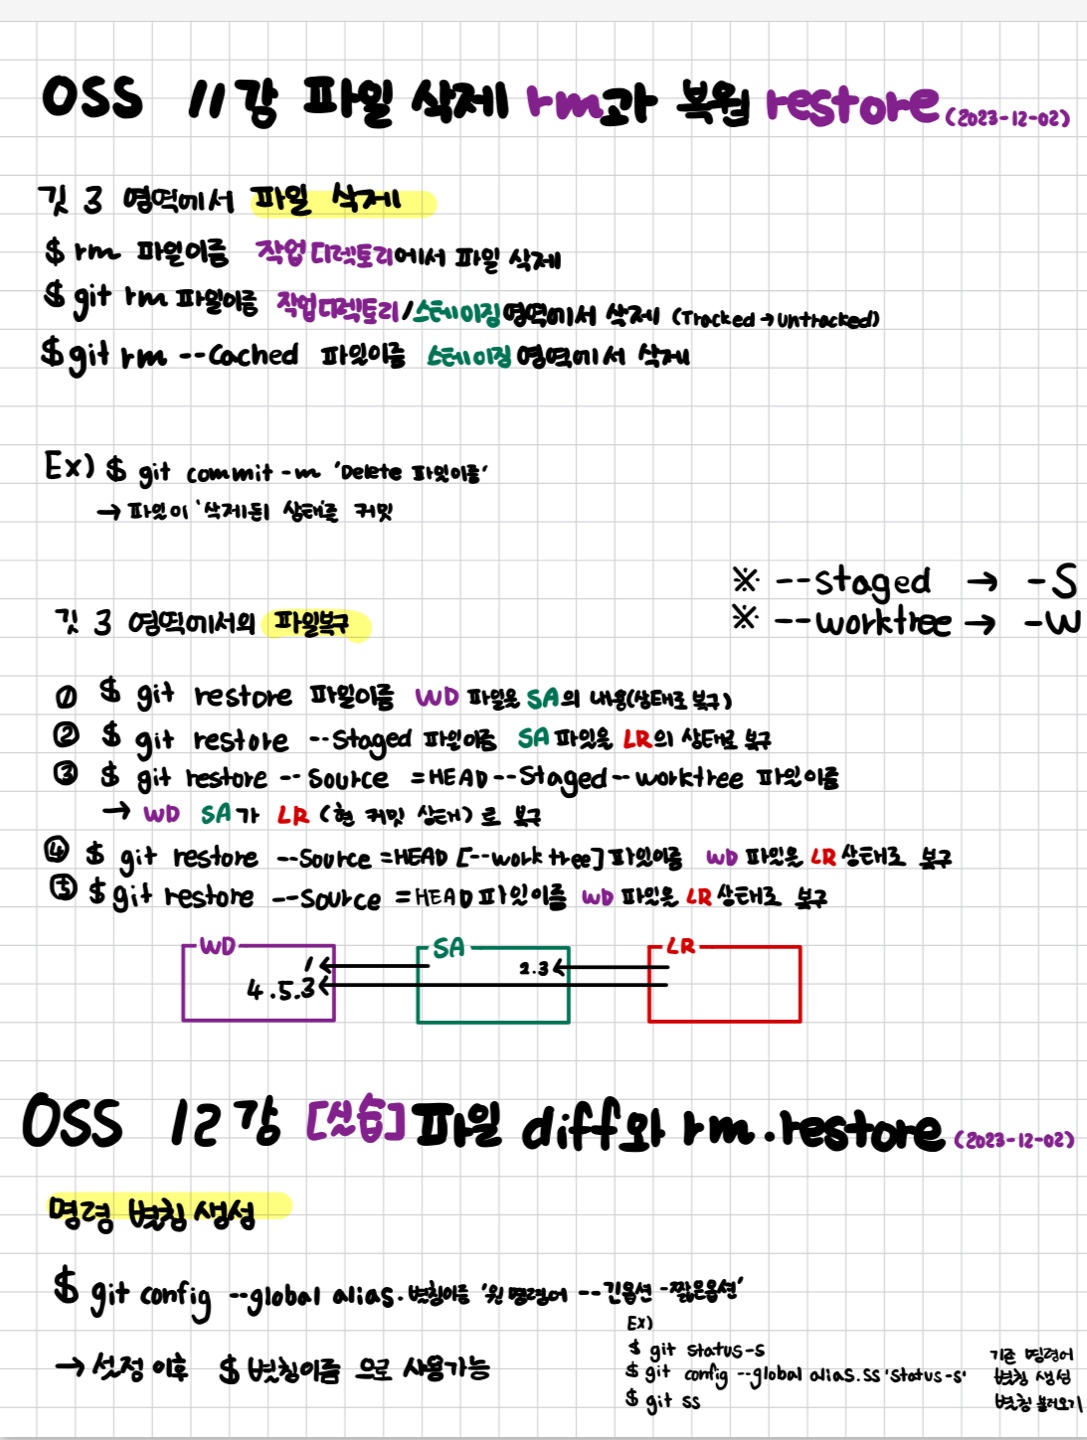 OSS 11강 파일 삭제 rm과 복원 restore (2023-12-02)
깃 3 영역에서 파일 삭제
$ rm 파일이름 작업디렉토리에서 파일 삭제
$ git rm 파일이름 작업디렉토리/스테이징영역에서 삭제 (Tracked → Untracked)
$ git rm --Cached 파일이름 스테이징영역에서 삭제
Ex) $ git commit -m 'Delete 파일이름'
→ 파일이 '삭제된' 상태를 커밋
※ --staged → -S
※ --worktree → -W
깃 3 영역에서의 파일복구
① $ git restore 파일이름 WD 파일을 SA의 내용(상태로 복구)
② $ git restore --Staged 파일이름 SA파일을 LR의 상태로 복구
③ $ git restore --Source =HEAD--Staged--worktree 파일이름
→ WD SA가 LR (현 커밋 상태)로 복구
④ $ git restore --Source =HEAD [--worktree] 파일이름 WD 파일을 LR 상태로 복구
⑤ $ git restore --Source =HEAD 파일이름 WD 파일을 LR 상태로 복구
WD SA LR
1 2.3
4.5.3
OSS 12강 [실습] 파일 diff와 rm.restore (2023-12-02)
명령 별칭 생성
$ git config --global alias.별칭이름 '원 명령어 --긴옵션 -짧은옵션'
→ 설정 이후 $ 별칭이름 으로 사용가능
Ex)
$ git status-s 기존 명령어
$ git config --global alias.ss 'status-s' 별칭 생성
$ git ss 별칭 불러오기